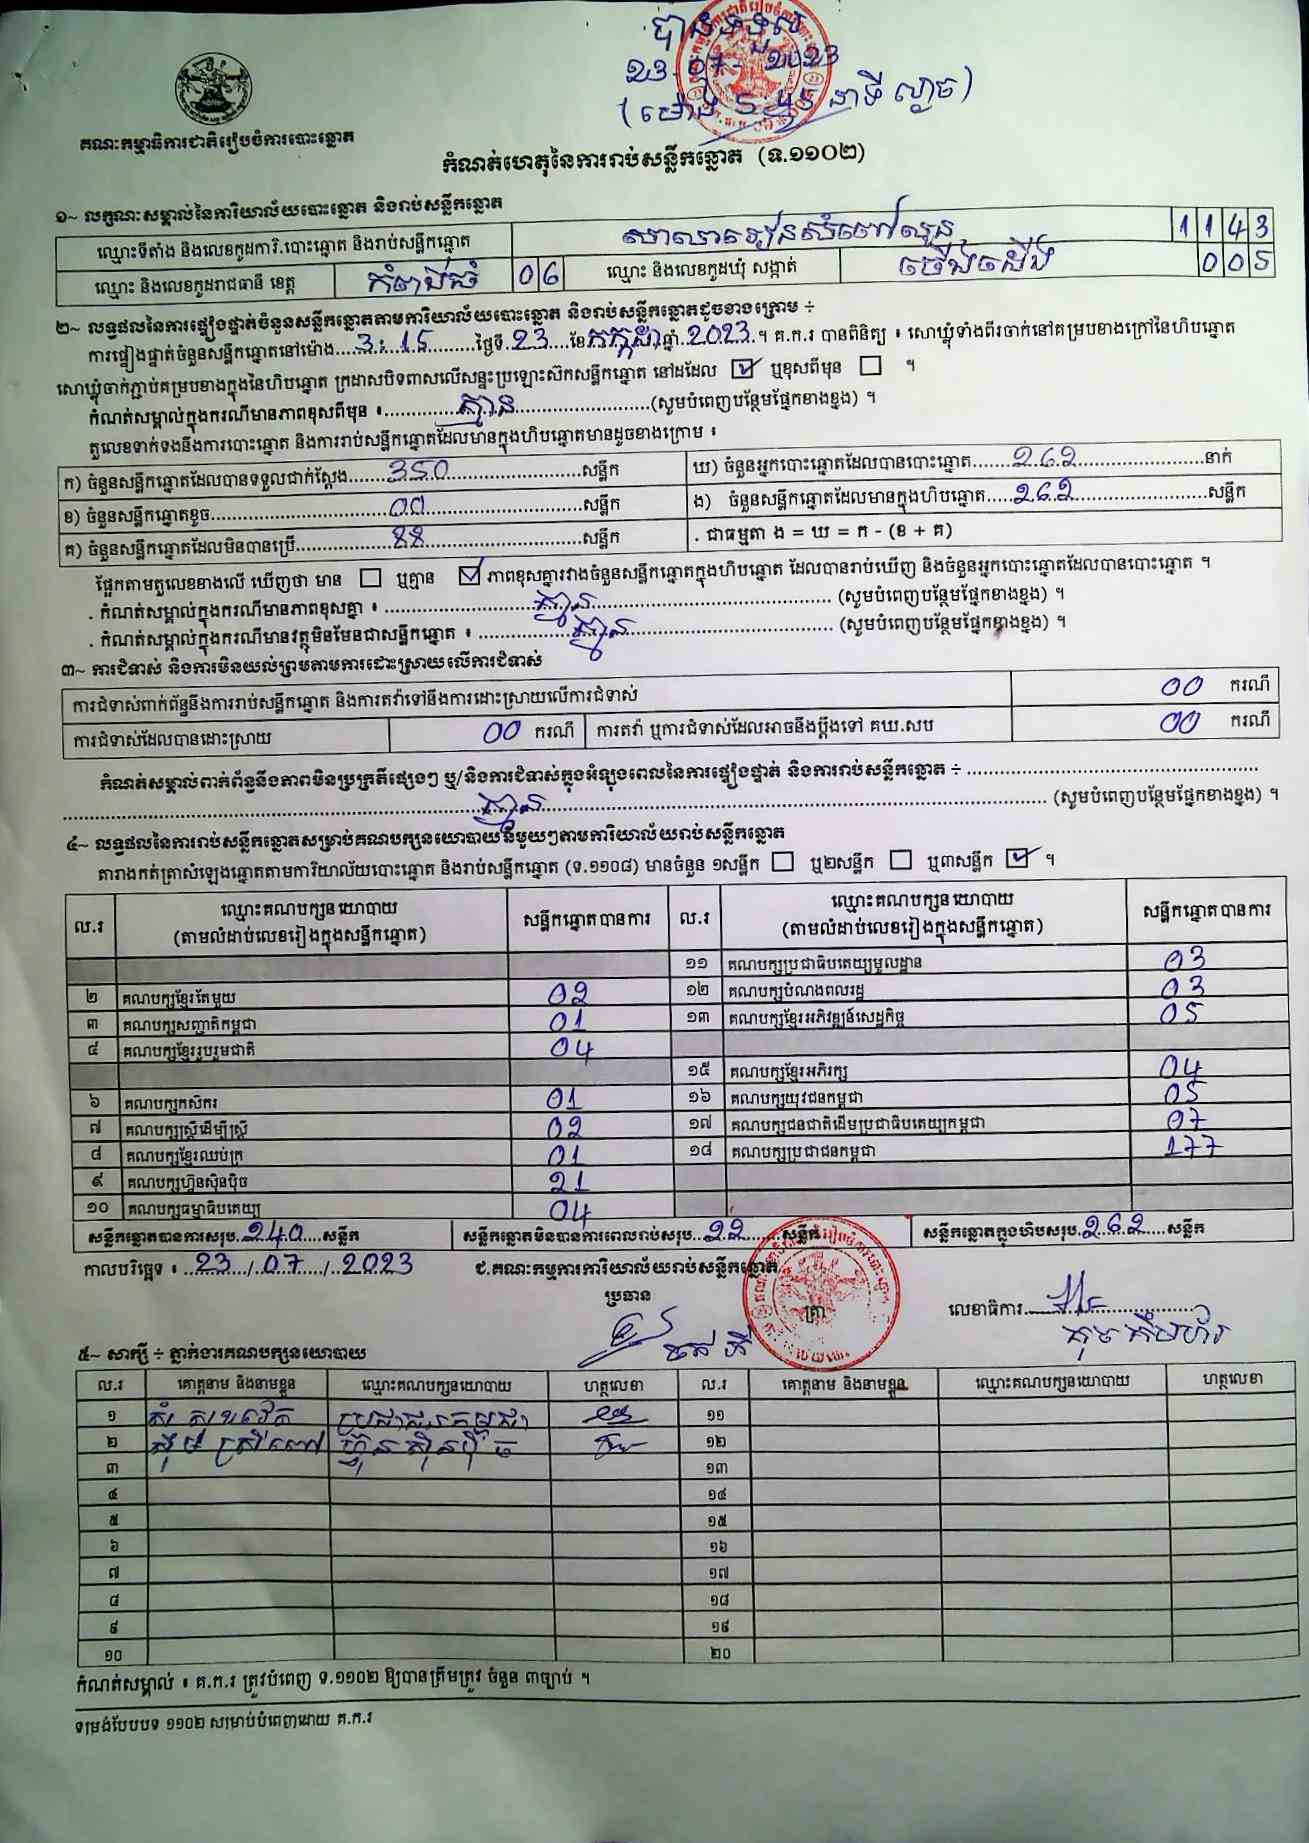 បានទទួល
23-07-2023
(ម៉ោង 5 45 នាទី ល្ងាច)
គណៈកម្មាធិការជាតិរៀបចំការបោះឆ្នោត
កំណត់ហេតុនៃការរាប់សន្លឹកឆ្នោត (ទ.១១០២)
១~ លក្ខណៈសម្គាល់នៃការិយាល័យបោះឆ្នោត និងរាប់សន្លឹកឆ្នោត
ឈ្មោះទីតាំង និងលេខកូដការិ.បោះឆ្នោត និងរាប់សន្លឹកឆ្នោត 1143
ឈ្មោះ និងលេខកូដរាជធានី ខេត្ត កំពង់ធំ 06 ឈ្មោះ និងលេខកូដឃុំ សង្កាត់ ចើងដើង 005
២~ លទ្ធផលនៃការផ្ទៀងផ្ទាត់ចំនួនសន្លឹកឆ្នោតតាមការិយាល័យបោះឆ្នោត និងរាប់សន្លឹកឆ្នោតដូចខាងក្រោម ÷
ការផ្ទៀងផ្ទាត់ចំនួនសន្លឹកឆ្នោតនៅម៉ោង...3:15...ថ្ងៃទី.23...ខែកក្កដា.ឆ្នាំ.2023.។ គ.ក.រ បានពិនិត្យ ៖ សោឃ្លុំទាំងពីរចាក់នៅគម្របខាងក្រៅនៃហិបឆ្នោត
សោឃ្លុំចាក់ភ្ជាប់គម្របខាងក្នុងនៃហិបឆ្នោត ក្រដាសបិទពាសលើសន្ទះប្រឡោះស៊កសន្លឹកឆ្នោត នៅដដែល ☑ ឬខុសពីមុន ☐ ។
កំណត់សម្គាល់ក្នុងករណីមានភាពខុសពីមុន ៖......គ្មាន......(សូមបំពេញបន្ថែមផ្នែកខាងខ្នង) ។
តួលេខទាក់ទងនឹងការបោះឆ្នោត និងការរាប់សន្លឹកឆ្នោតដែលមានក្នុងហិបឆ្នោតមានដូចខាងក្រោម ៖
ក) ចំនួនសន្លឹកឆ្នោតដែលបានទទួលជាក់ស្តែង......350......សន្លឹក
ឃ) ចំនួនអ្នកបោះឆ្នោតដែលបានបោះឆ្នោត......262......នាក់
ខ) ចំនួនសន្លឹកឆ្នោតខូច......00......សន្លឹក
ង) ចំនួនសន្លឹកឆ្នោតដែលមានក្នុងហិបឆ្នោត......262......សន្លឹក
គ) ចំនួនសន្លឹកឆ្នោតដែលមិនបានប្រើ......88......សន្លឹក
. ជាធម្មតា ង = ឃ = ក - (ខ + គ)
ផ្អែកតាមតួលេខខាងលើ ឃើញថា មាន ☐ ឬគ្មាន ☑ ភាពខុសគ្នារវាងចំនួនសន្លឹកឆ្នោតក្នុងហិបឆ្នោត ដែលបានរាប់ឃើញ និងចំនួនអ្នកបោះឆ្នោតដែលបានបោះឆ្នោត ។
. កំណត់សម្គាល់ក្នុងករណីមានភាពខុសគ្នា ៖ ......គ្មាន...... (សូមបំពេញបន្ថែមផ្នែកខាងខ្នង) ។
. កំណត់សម្គាល់ក្នុងករណីមានវត្ថុមិនមែនជាសន្លឹកឆ្នោត ៖ ......គ្មាន...... (សូមបំពេញបន្ថែមផ្នែកខាងខ្នង) ។
៣~ ការជំទាស់ និងការមិនយល់ព្រមតាមការដោះស្រាយលើការជំទាស់
ការជំទាស់ពាក់ព័ន្ធនឹងការរាប់សន្លឹកឆ្នោត និងការតវ៉ាទៅនឹងការដោះស្រាយលើការជំទាស់ 00 ករណី
ការជំទាស់ដែលបានដោះស្រាយ 00 ករណី ការតវ៉ា ឬការជំទាស់ដែលអាចនឹងប្តឹងទៅ គឃ.សប 00 ករណី
កំណត់សម្គាល់ពាក់ព័ន្ធនឹងភាពមិនប្រក្រតីផ្សេងៗ ឬ/និងការជំទាស់ក្នុងអំឡុងពេលនៃការផ្ទៀងផ្ទាត់ និងការរាប់សន្លឹកឆ្នោត ÷ ......
......គ្មាន...... (សូមបំពេញបន្ថែមផ្នែកខាងខ្នង) ។
៤~ លទ្ធផលនៃការរាប់សន្លឹកឆ្នោតសម្រាប់គណបក្សនយោបាយនីមួយៗតាមការិយាល័យរាប់សន្លឹកឆ្នោត
តារាងកត់ត្រាសំឡេងឆ្នោតតាមការិយាល័យបោះឆ្នោត និងរាប់សន្លឹកឆ្នោត (ទ.១១០៨) មានចំនួន ១សន្លឹក ☐ ឬ២សន្លឹក ☐ ឬ៣សន្លឹក ☑ ។
ល.រ ឈ្មោះគណបក្សនយោបាយ (តាមលំដាប់លេខរៀងក្នុងសន្លឹកឆ្នោត) សន្លឹកឆ្នោតបានការ ល.រ ឈ្មោះគណបក្សនយោបាយ (តាមលំដាប់លេខរៀងក្នុងសន្លឹកឆ្នោត) សន្លឹកឆ្នោតបានការ
១១ គណបក្សប្រជាធិបតេយ្យមូលដ្ឋាន 03
២ គណបក្សខ្មែរតែមួយ 02 ១២ គណបក្សបំណងពលរដ្ឋ 03
៣ គណបក្សសញ្ជាតិកម្ពុជា 01 ១៣ គណបក្សខ្មែរអភិវឌ្ឍន៍សេដ្ឋកិច្ច 05
៤ គណបក្សខ្មែររួបរួមជាតិ 04
១៥ គណបក្សខ្មែរអភិរក្ស 04
៦ គណបក្សកសិករ 01 ១៦ គណបក្សយុវជនកម្ពុជា 05
៧ គណបក្សស្ត្រីដើម្បីស្ត្រី 02 ១៧ គណបក្សជនជាតិដើមប្រជាធិបតេយ្យកម្ពុជា 07
៨ គណបក្សខ្មែរឈប់ក្រ 01 ១៨ គណបក្សប្រជាជនកម្ពុជា 177
៩ គណបក្សហ៊្វុនស៊ិនប៉ិច 21
១០ គណបក្សធម្មាធិបតេយ្យ 04
សន្លឹកឆ្នោតបានការសរុប.240....សន្លឹក សន្លឹកឆ្នោតមិនបានការពេលរាប់សរុប..22......សន្លឹក សន្លឹកឆ្នោតក្នុងហិបសរុប.262....សន្លឹក
កាលបរិច្ឆេទ ៖ .23.../.07.../..2023 ជ.គណៈកម្មការការិយាល័យរាប់សន្លឹកឆ្នោត
ប្រធាន ត្រា លេខាធិការ..........
៥~ សាក្សី ÷ ភ្នាក់ងារគណបក្សនយោបាយ
ល.រ គោត្តនាម និងនាមខ្លួន ឈ្មោះគណបក្សនយោបាយ ហត្ថលេខា ល.រ គោត្តនាម និងនាមខ្លួន ឈ្មោះគណបក្សនយោបាយ ហត្ថលេខា
១ ប្រជាជនកម្ពុជា ១១
២ ហ៊្វុនស៊ិនប៉ិច ១២
៣ ១៣
៤ ១៤
៥ ១៥
៦ ១៦
៧ ១៧
៨ ១៨
៩ ១៩
១០ ២០
កំណត់សម្គាល់ ៖ គ.ក.រ ត្រូវបំពេញ ទ.១១០២ ឱ្យបានត្រឹមត្រូវ ចំនួន ៣ច្បាប់ ។
ទម្រង់បែបបទ ១១០២ សម្រាប់បំពេញដោយ គ.ក.រ